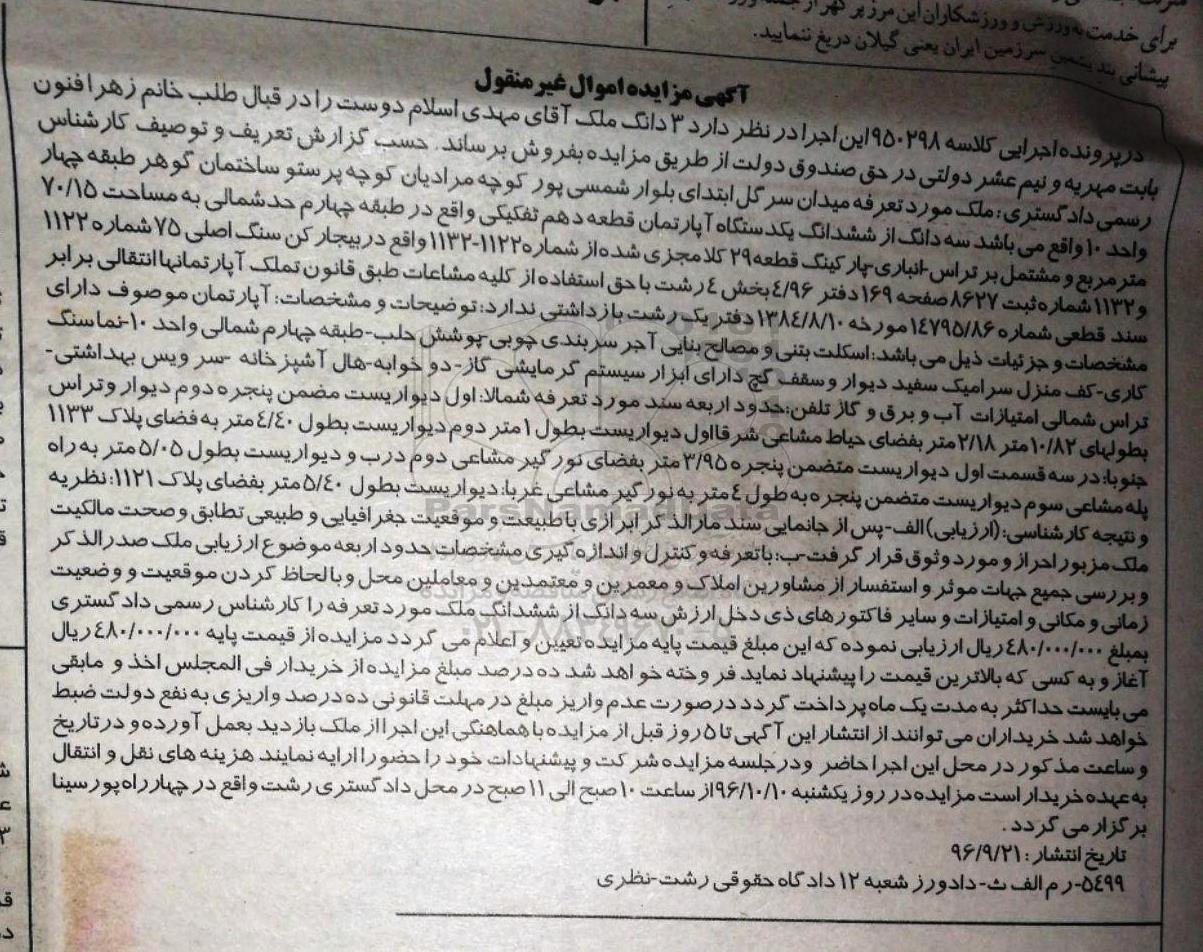 برای خدمت به ورزش و ورزشکاران این مرز پر گهر از
پیشانی بند یشمین سرزمین ایران یعنی گیلان دریغ ننمایید.
آگهی مزایده اموال غیر منقول
در پرونده اجرایی کلاسه ۹۵۰۲۹۸ این اجرا در نظر دارد ۳ دانگ ملک آقای مهدی اسلام دوست را در قبال طلب خانم زهرا فنون
بابت مهریه و نیم عشر دولتی در حق صندوق دولت از طریق مزایده بفروش برساند. حسب گزارش تعریف و توصیف کارشناس
رسمی دادگستری: ملک مورد تعرفه میدان سر گل ابتدای بلوار شمسی پور کوچه مرادیان کوچه پرستو ساختمان گوهر طبقه چهار
واحد ۱۰ واقع می باشد سه دانگ از ششدانگ یکدستگاه آپارتمان قطعه دهم تفکیکی واقع در طبقه چهارم حد شمالی به مساحت ۷۰/۱۵
متر مربع و مشتمل بر تراس-انباری-پارکینگ قطعه ۲۹ کلا مجزی شده از شماره ۱۱۲۲-۱۱۳۲ واقع در بیجار کن سنگ اصلی ۷۵ شماره ۱۱۲۲
و ۱۱۳۲ شماره ثبت ۸۶۲۷ صفحه ۱۶۹ دفتر ۴/۹۶ بخش ۴ رشت با حق استفاده از کلیه مشاعات طبق قانون تملک آپارتمانها انتقالی برابر
سند قطعی شماره ۱۴۷۹۵/۸۶ مورخه ۱۳۸۴/۸/۱۰ دفتر یک رشت بازداشتی ندارد: توضیحات و مشخصات: آپارتمان موصوف دارای
مشخصات و جزئیات ذیل می باشد: اسکلت بتنی و مصالح بنایی آجر سربندی چوبی-پوشش حلب-طبقه چهارم شمالی واحد ۱۰-نما سنگ
کاری-کف منزل سرامیک سفید دیوار و سقف گچ دارای ابزار سیستم گرمایشی گاز-دو خوابه-هال آشپزخانه -سرویس بهداشتی-
تراس شمالی امتیازات آب و برق و گاز تلفن: حدود اربعه سند مورد تعرفه شمالا: اول دیواریست مضمن پنجره دوم دیوار و تراس
بطولهای ۱۰/۸۲ متر ۲/۱۸ متر بفضای حیاط مشاعی شرقا اول دیواریست بطول ۱ متر دوم دیواریست بطول ۴/۴۰ متر به فضای پلاک ۱۱۳۳
جنوبا: در سه قسمت اول دیواریست متضمن پنجره ۳/۹۵ متر بفضای نورگیر مشاعی دوم درب و دیواریست بطول ۵/۰۵ متر به راه
پله مشاعی سوم دیواریست متضمن پنجره به طول ۴ متر به نورگیر مشاعی غربا: دیواریست بطول ۵/۴۰ متر بفضای پلاک ۱۱۲۱: نظریه
و نتیجه کارشناسی: (ارزیابی) الف-پس از جانمایی سند مارالذکر ابرازی با طبیعت و موقعیت جغرافیایی و طبیعی تطابق و صحت مالکیت
ملک مزبور احراز و مورد وثوق قرار گرفت-ب: با تعرفه و کنترل و اندازه گیری مشخصات حدود اربعه موضوع ارزیابی ملک صدرالذکر
و بررسی جمیع جهات موثر و استفسار از مشاورین املاک و معمرین و معتمدین و معاملین محل و با لحاظ کردن موقعیت و وضعیت
زمانی و مکانی و امتیازات و سایر فاکتورهای ذی دخل ارزش سه دانگ از ششدانگ ملک مورد تعرفه را کارشناس رسمی دادگستری
بمبلغ ۴۸۰/۰۰۰/۰۰۰ ریال ارزیابی نموده که این مبلغ قیمت پایه مزایده تعیین و اعلام می گردد مزایده از قیمت پایه ۴۸۰/۰۰۰/۰۰۰ ریال
آغاز و به کسی که بالاترین قیمت را پیشنهاد نماید فروخته خواهد شد ده درصد مبلغ مزایده از خریدار فی المجلس اخذ و مابقی
می بایست حداکثر به مدت یک ماه پرداخت گردد در صورت عدم واریز مبلغ در مهلت قانونی ده درصد واریزی به نفع دولت ضبط
خواهد شد خریداران می توانند از انتشار این آگهی تا ۵ روز قبل از مزایده با هماهنگی این اجرا از ملک بازدید بعمل آورده و در تاریخ
و ساعت مذکور در محل این اجرا حاضر و در جلسه مزایده شرکت و پیشنهادات خود را حضورا ارایه نمایند هزینه های نقل و انتقال
به عهده خریدار است مزایده در روز یکشنبه ۹۶/۱۰/۱۰ از ساعت ۱۰ صبح الی ۱۱ صبح در محل دادگستری رشت واقع در چهارراه پورسینا
برگزار می گردد.
تاریخ انتشار: ۹۶/۹/۲۱
۵۴۹۹-ر م الف ث-دادورز شعبه ۱۲ دادگاه حقوقی رشت-نظری
ParsNamadData